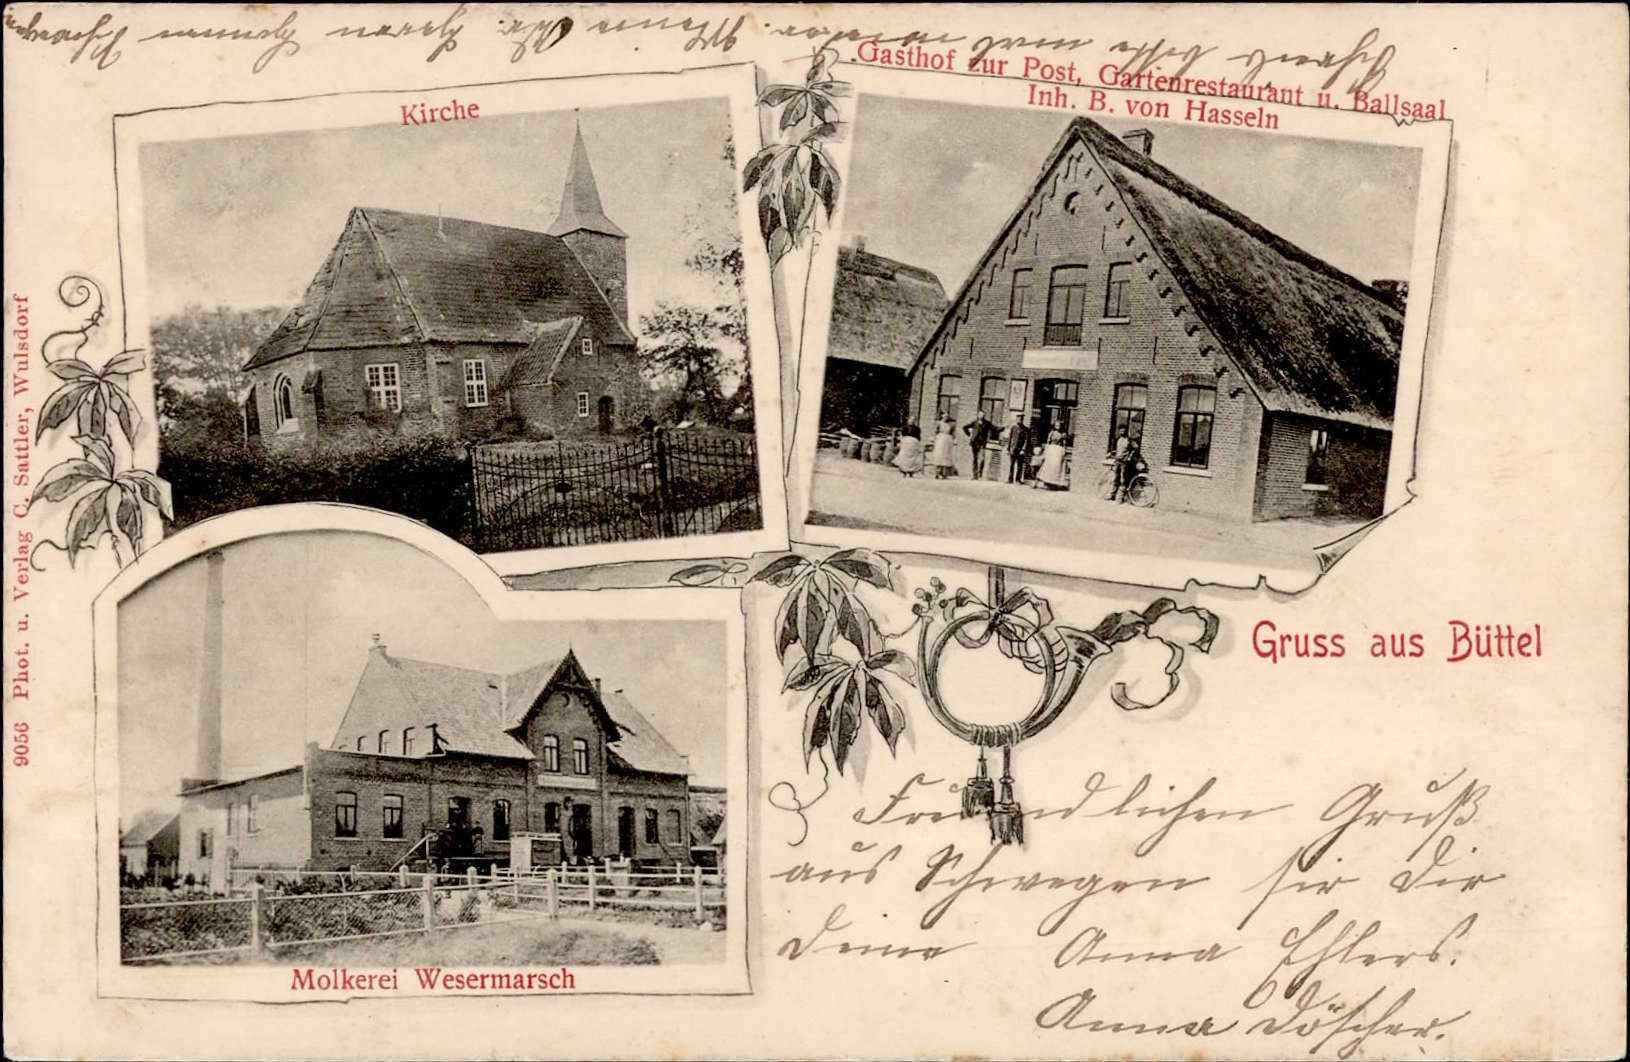 Kirche
Gasthof zur Post, Gartenrestaurant u. Ballsaal
Inh. B. von Hasseln
Gruss aus Büttel
Molkerei Wesermarsch
9056 Phot. u. Verlag C. Sattler, Wulsdorf
Freundlichen Gruß
aus Schwegen sir Dir
Deine Anna Ehlers.
Anna Döscher.